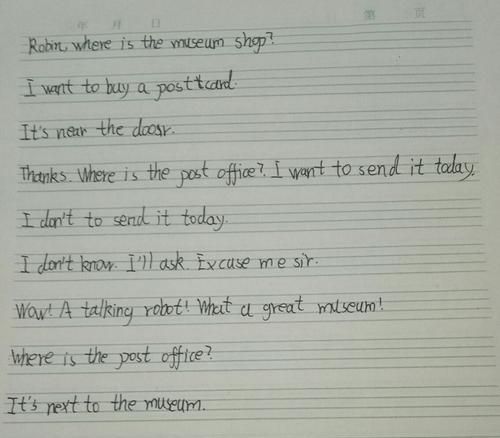 年 月 日 第 页
Robin, where is the museum shop?
I want to buy a posttcard.
It's near the doosr.
Thanks. Where is the post office? I want to send it today.
I don't to send it today.
I don't know. I'll ask. Excuse me sir.
Wow! A talking robot! What a great museum!
Where is the post office?
It's next to the museum.